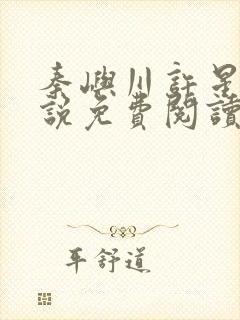 秦嶼川許是
說免費閱讀
平舒道